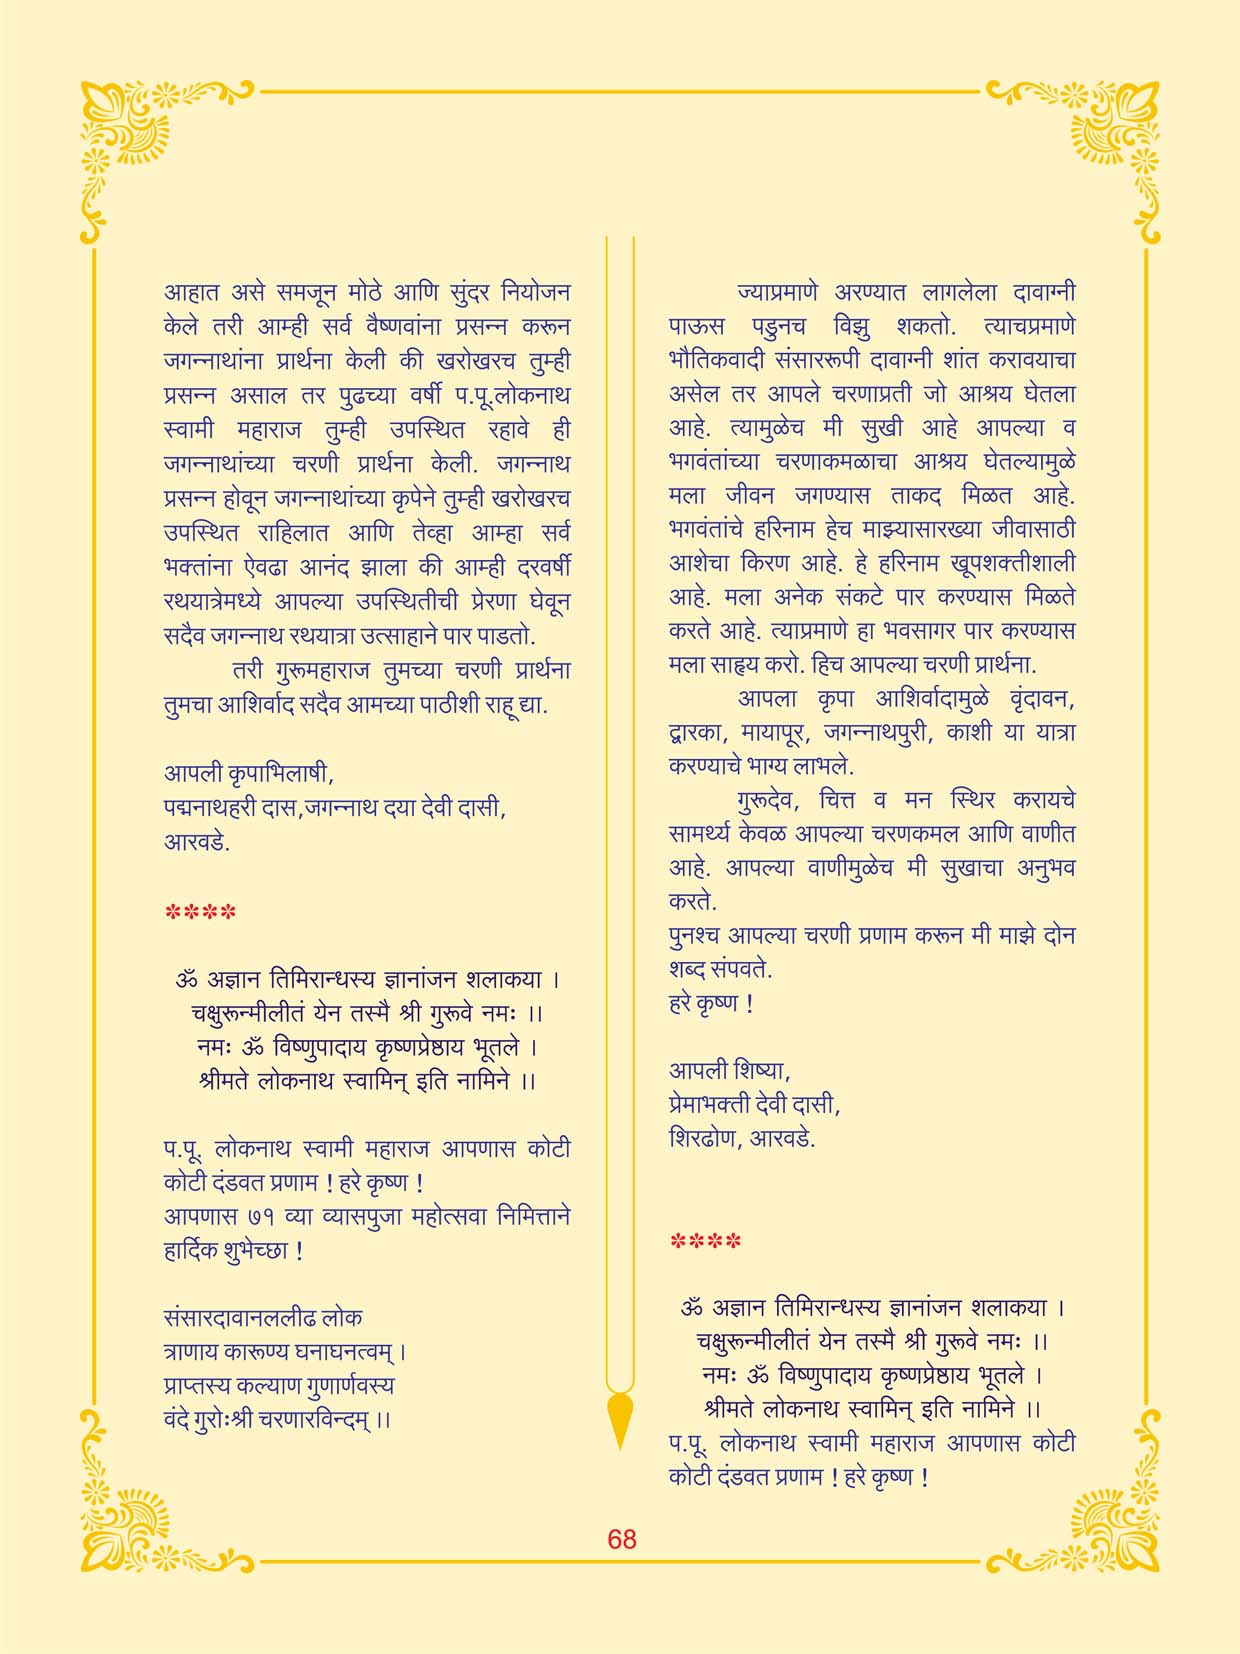 आहात असे समजून मोठे आणि सुंदर नियोजन
केले तरी आम्ही सर्व वैष्णवांना प्रसन्न करून
जगन्नाथांना प्रार्थना केली की खरोखरच तुम्ही
प्रसन्न असाल तर पुढच्या वर्षी प.पू.लोकनाथ
स्वामी महाराज तुम्ही उपस्थित रहावे ही
जगन्नाथांच्या चरणी प्रार्थना केली. जगन्नाथ
प्रसन्न होवून जगन्नाथांच्या कृपेने तुम्ही खरोखरच
उपस्थित राहिलात आणि तेव्हा आम्हा सर्व
भक्तांना ऐवढा आनंद झाला की आम्ही दरवर्षी
रथयात्रेमध्ये आपल्या उपस्थितीची प्रेरणा घेवून
सदैव जगन्नाथ रथयात्रा उत्साहाने पार पाडतो.
तरी गुरूमहाराज तुमच्या चरणी प्रार्थना
तुमचा आशिर्वाद सदैव आमच्या पाठीशी राहू द्या.
आपली कृपाभिलाषी,
पद्मनाथहरी दास,जगन्नाथ दया देवी दासी,
आरवडे.
****
ॐ अज्ञान तिमिरान्धस्य ज्ञानांजन शलाकया ।
चक्षुरून्मीलीतं येन तस्मै श्री गुरूवे नमः ।।
नमः ॐ विष्णुपादाय कृष्णप्रेष्ठाय भूतले ।
श्रीमते लोकनाथ स्वामिन् इति नामिने ।।
प.पू. लोकनाथ स्वामी महाराज आपणास कोटी
कोटी दंडवत प्रणाम ! हरे कृष्ण !
आपणास ७१ व्या व्यासपुजा महोत्सवा निमित्ताने
हार्दिक शुभेच्छा !
संसारदावानललीढ लोक
त्राणाय कारूण्य घनाघनत्वम् ।
प्राप्तस्य कल्याण गुणार्णवस्य
वंदे गुरोःश्री चरणारविन्दम् ।।
ज्याप्रमाणे अरण्यात लागलेला दावाग्नी
पाऊस पडुनच विझु शकतो. त्याचप्रमाणे
भौतिकवादी संसाररूपी दावाग्नी शांत करावयाचा
असेल तर आपले चरणाप्रती जो आश्रय घेतला
आहे. त्यामुळेच मी सुखी आहे आपल्या व
भगवंतांच्या चरणाकमळाचा आश्रय घेतल्यामुळे
मला जीवन जगण्यास ताकद मिळत आहे.
भगवंतांचे हरिनाम हेच माझ्यासारख्या जीवासाठी
आशेचा किरण आहे. हे हरिनाम खूपशक्तीशाली
आहे. मला अनेक संकटे पार करण्यास मिळते
करते आहे. त्याप्रमाणे हा भवसागर पार करण्यास
मला साहृय करो. हिच आपल्या चरणी प्रार्थना.
आपला कृपा आशिर्वादामुळे वृंदावन,
द्वारका, मायापूर, जगन्नाथपुरी, काशी या यात्रा
करण्याचे भाग्य लाभले.
गुरूदेव, चित्त व मन स्थिर करायचे
सामर्थ्य केवळ आपल्या चरणकमल आणि वाणीत
आहे. आपल्या वाणीमुळेच मी सुखाचा अनुभव
करते.
पुनश्च आपल्या चरणी प्रणाम करून मी माझे दोन
शब्द संपवते.
हरे कृष्ण !
आपली शिष्या,
प्रेमाभक्ती देवी दासी,
शिरढोण, आरवडे.
****
ॐ अज्ञान तिमिरान्धस्य ज्ञानांजन शलाकया ।
चक्षुरून्मीलीतं येन तस्मै श्री गुरूवे नमः ।।
नमः ॐ विष्णुपादाय कृष्णप्रेष्ठाय भूतले ।
श्रीमते लोकनाथ स्वामिन् इति नामिने ।।
प.पू. लोकनाथ स्वामी महाराज आपणास कोटी
कोटी दंडवत प्रणाम ! हरे कृष्ण !
68